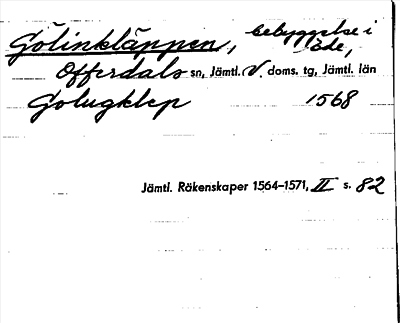 Gölinkläppen, bebyggelse i
öde,
Offerdals sn, Jämtl. V. doms. tg, Jämtl. län
Golugklep 1568
Jämtl. Räkenskaper 1564–1571, II s. 82